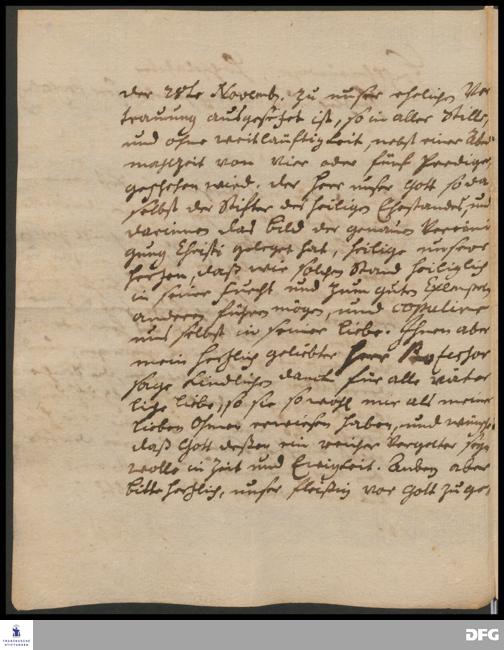 der 28te Novemb. zu unser ehelichen Ver
trauung ausgesetzet ist, so in aller Stille
und ohne weitläuftigkeit, nebst einer Abe
mahlzeit von vier oder fünf Prediger
geschehen wird. der Herr unser Gott so da
selbst der Stifter des heiligen Ehestandes, und
darinnen das bild der genauen Vereini
gung Christi geleget hat, heilige unsere
hertzen, daß wir solchen Stand heiliglich
in seiner furcht und zum guten Exempel
anderen führen mögen, und copulire
uns selbst in seiner liebe. Ihnen aber
mein hertzlich geliebter Herr Professor
sage kindlichen danck für alle väter
liche liebe, so sie so wohl mir als meiner
lieben erwiesen haben, und wünsche
daß Gott deßen ein reicher Vergelter seyn
wolle in Zeit und Ewigkeit. Anbey aber
bitte hertzlich, unser fleißig vor Gott zu ge,
FRANCKESCHE STIFTUNGEN
DFG